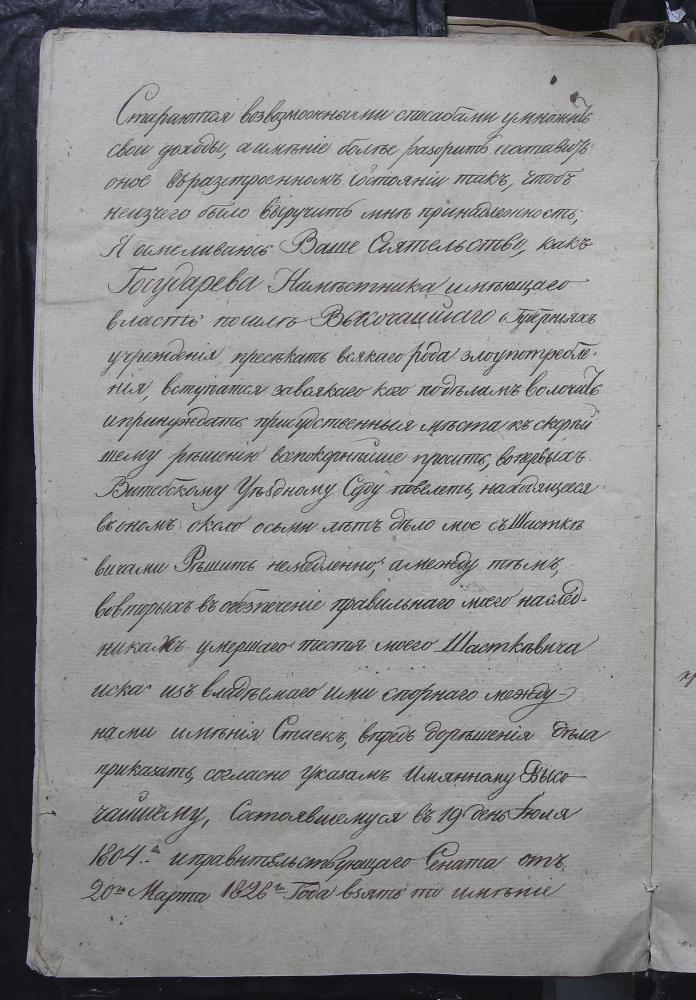 Стараются возвозможными способами умножить
свои доходы, а имѣніе болѣе разорить и оставить
оное въ разстроенномъ состояніи такъ, чтобъ
неизчего было выручить мнѣ принадлежность,
Я осмеливаюсь Ваше Сіятельство, какъ
Государева Намѣстника имѣющаго
власть по силѣ Высочайшаго о Губерніяхъ
учрежденія пресѣкать всякаго рода злоупотребле-
нія, вступатся завсякаго кого по дѣламъ волочить
и принуждать присудственныя мѣста къ скорѣй
шему рѣшенію всепокорнѣйше просить, вопервыхъ
Витебскому Уѣздному Суду повелеть, находящееся
въ ономъ около осьми лѣтъ дѣло мое съ Шасткѣ
вичами Рѣшить немедленно; а между тѣмъ,
вовторыхъ въ обезпеченіе правильнаго моего наслед-
никахъ умершаго тестя моего Шасткѣвича
иска изъ владѣемаго ими спорнаго между
нами имѣнія Стаекъ, впредь дорѣшенія дѣла
приказать, согласно указамъ Имянному Высо
чайшему, Состоявшемуся въ 19 день Іюля
1804.го и правительствующаго Сената отъ
20го Марта 1828го Года взять то имѣніе